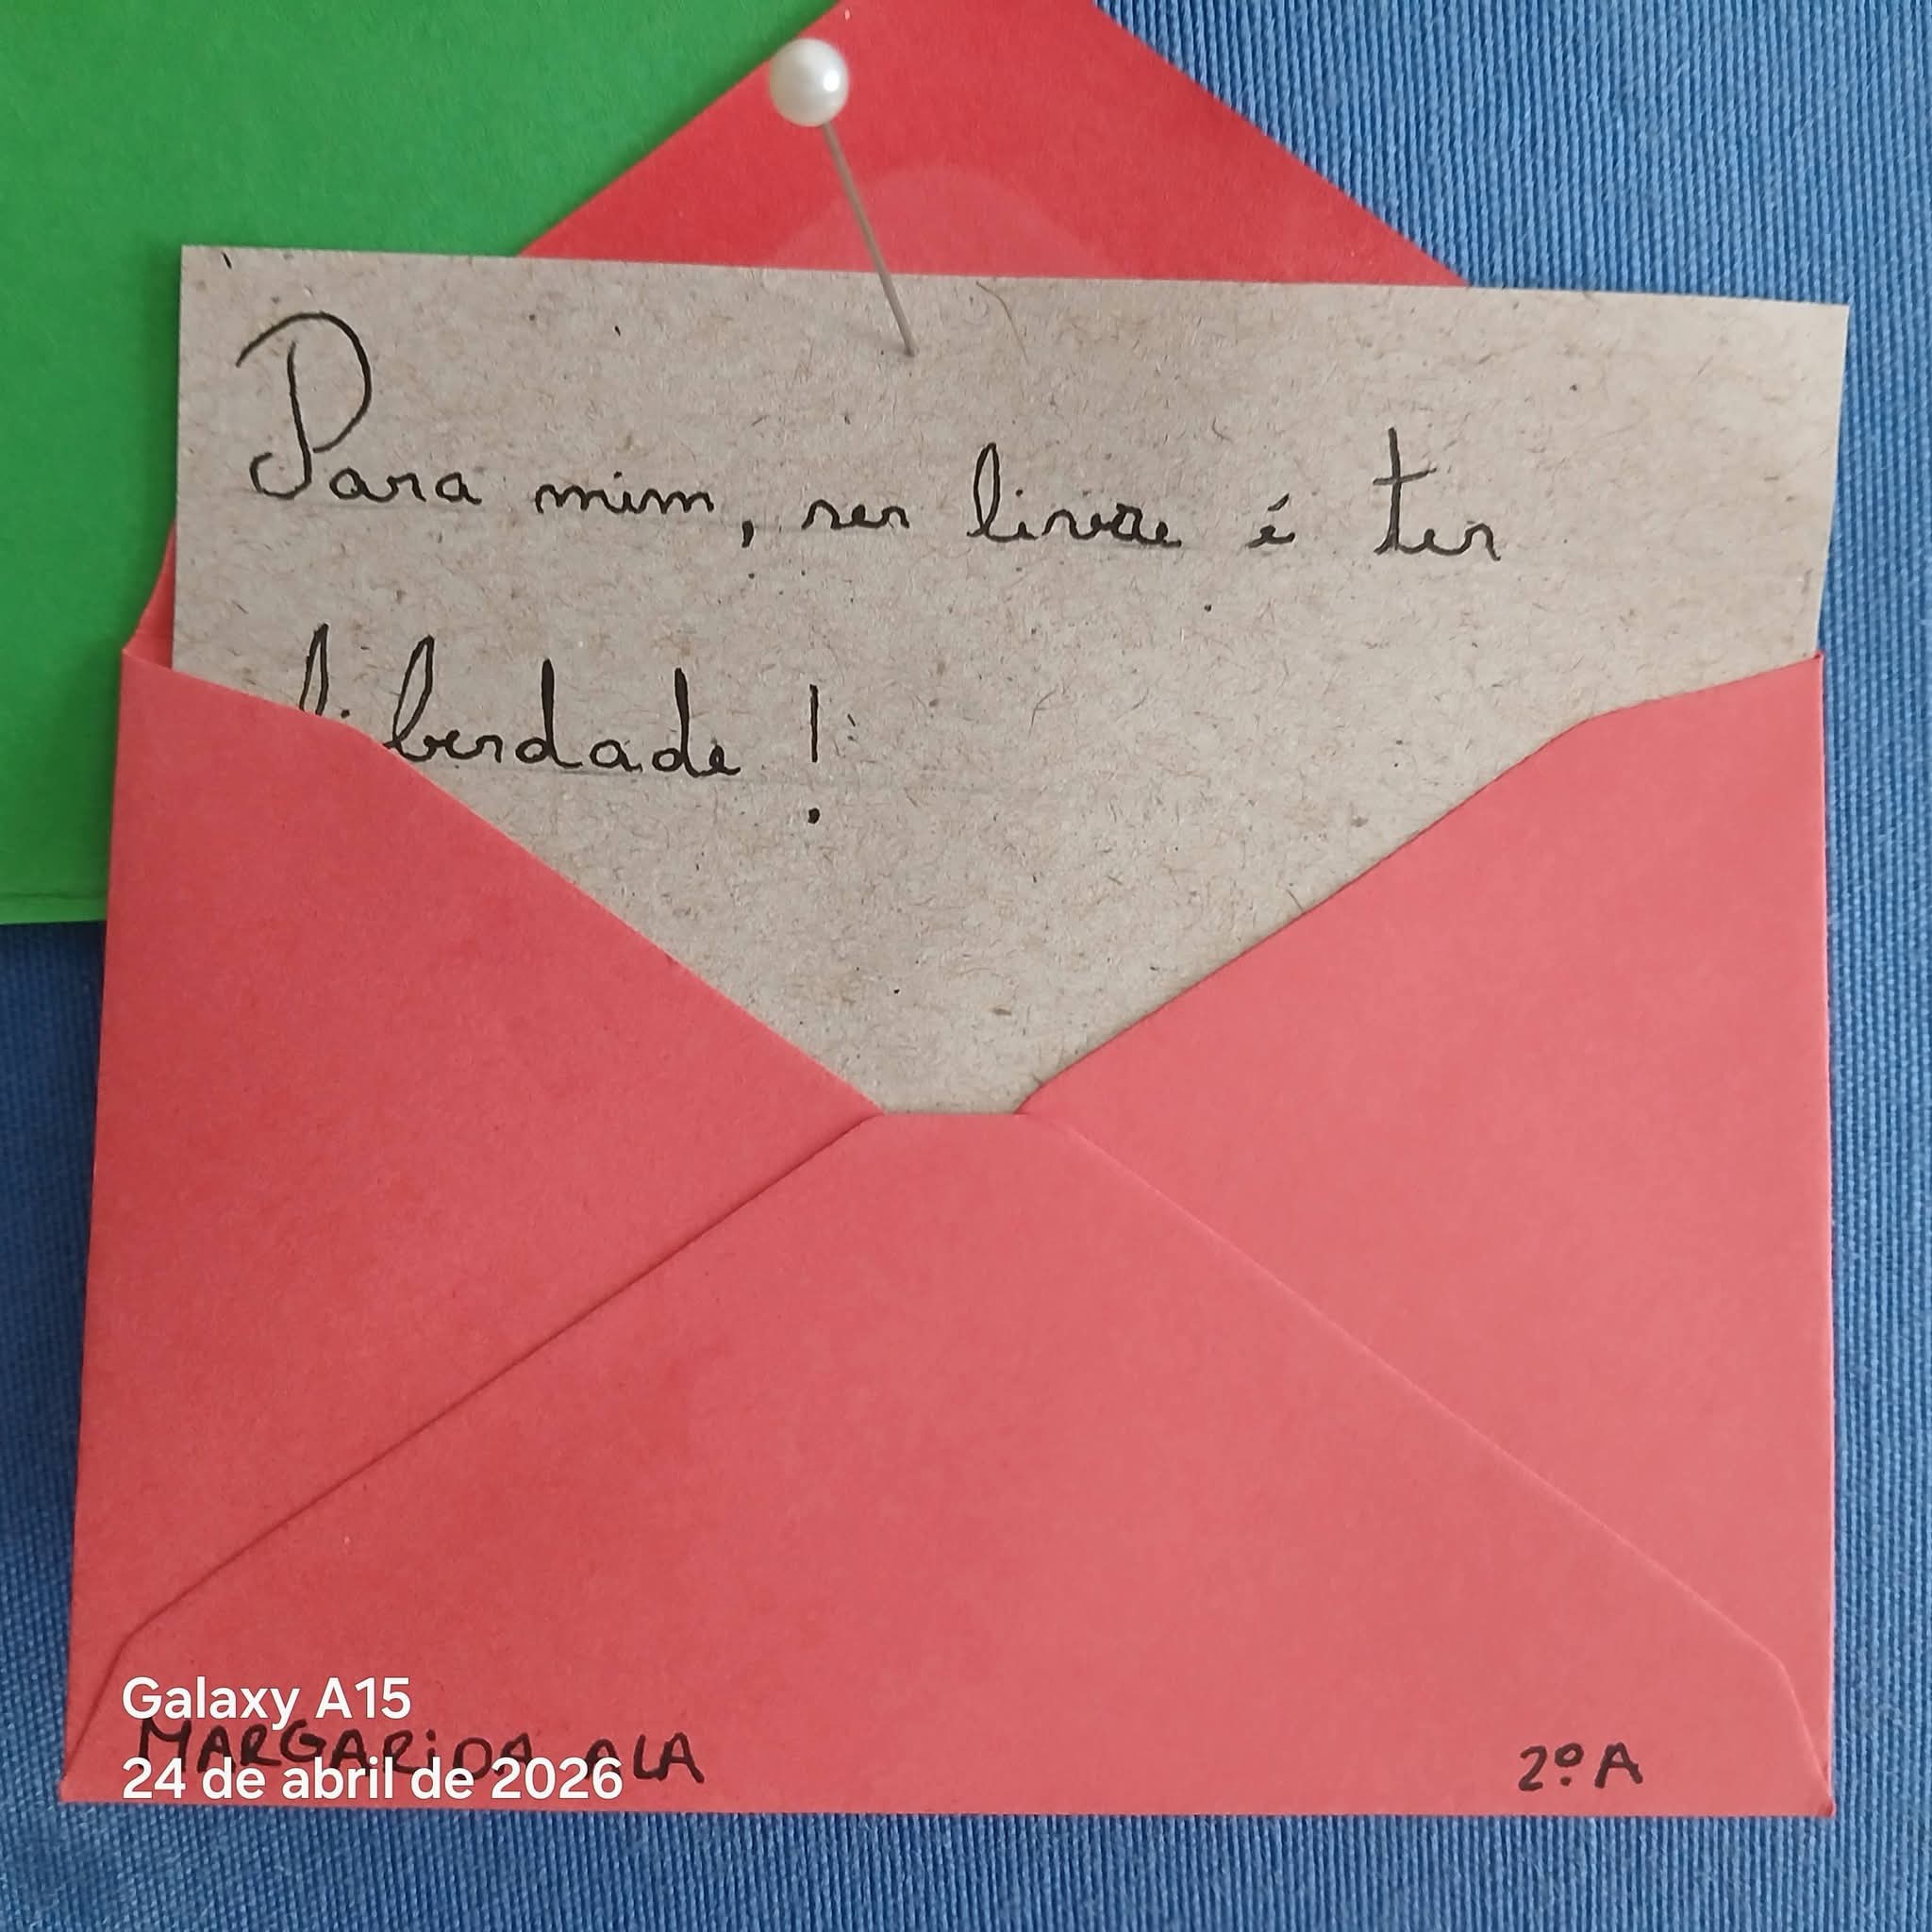 Para mim, ser livre é ter
liberdade !
Galaxy A15
MARGARIDA ALA
24 de abril de 2026
2º A